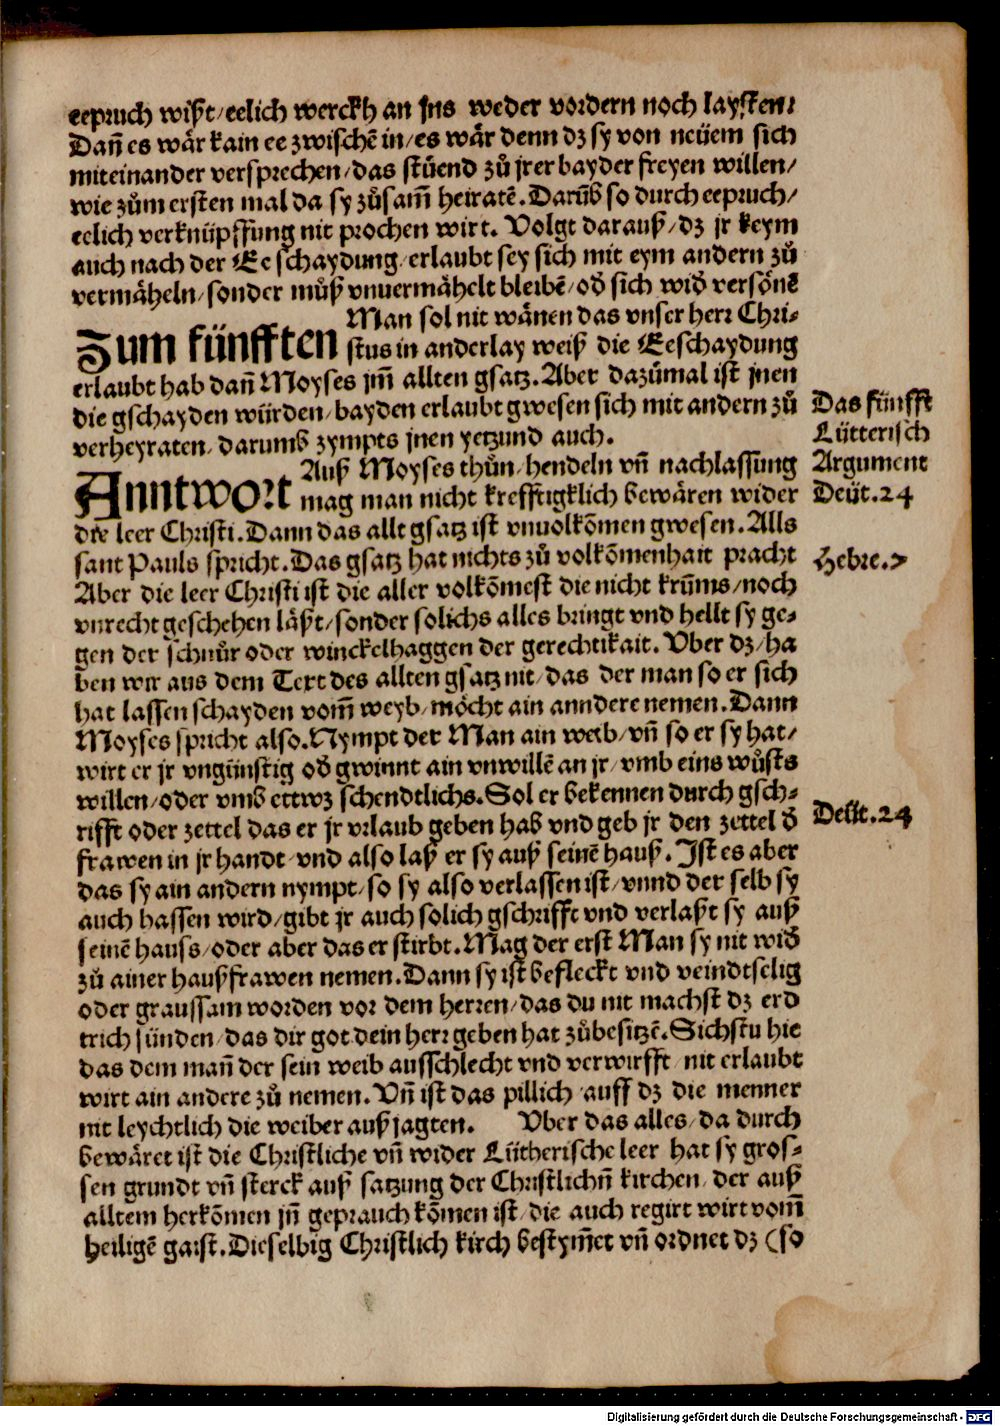 eepruch wißt/eelich werckh an jns weder vordern noch laysten:
Dañ es wär kain ee zwischē in/es wär denn dz sy von neüem sich
miteinander versprechen/das stüend zů jrer bayder freyen willen/
wie zům ersten mal da sy zůsam̃ heiratē. Darũb so durch eepruch/
eelich verknüpffung nit prochen wirt. Volgt darauß/dz jr keym
auch nach der Ee schaydung/erlaubt sey sich mit eym andern zů
vermäheln/sonder můß vnuermähelt bleibē/oď sich wiď versönē
Zum fünfften Man sol nit wänen das vnser herr Chri-
stus in anderlay weiß die Eeschaydung
erlaubt hab dañ Moyses jm̃ allten gsatz. Aber dazůmal ist jnen
die gschayden würden/bayden erlaubt gwesen sich mit andern zů
verheyraten/darumb zympts jnen yetzund auch.
Das fünfft
Lütterisch
Argument
Deüt.24
Anntwort Auß Moyses thůn/hendeln vñ nachlassung
mag man nicht krefftigklich bewären wider
die leer Christi. Dann das allt gsatz ist vnuolkõmen gwesen. Alls
sant Pauls spricht. Das gsatz hat nichts zů volkõmenhait pracht
Hebre.7
Aber die leer Christi ist die aller volkõmest die nicht krũms/noch
vnrecht geschehen läßt/sonder solichs alles bringt vnd hellt sy ge-
gen der schnůr oder winckelhaggen der gerechtikait. Vber dz/ha
ben wir aus dem Text des allten gsatz nit/das der man so er sich
hat lassen schayden vom̃ weyb/möcht ain anndere nemen. Dann
Moyses spricht also. Nympt der Man ain weib/vñ so er sy hat/
wirt er jr vngünstig oď gwinnt ain vnwillē an jr/vmb eins wůsts
willen/oder vmb ettwz schendtlichs. Sol er bekennen durch gsch-
rifft oder zettel das er jr vrlaub geben hab vnd geb jr den zettel ď
Deüt.24
frawen in jr handt/vnd also laß er sy auß seinē hauß. Ist es aber
das sy ain andern nympt/so sy also verlassen ist/vnnd der selb sy
auch hassen wird/gibt jr auch solich gschrifft vnd verlaßt sy auß
seinē hauss/oder aber das er stirbt. Mag der erst Man sy nit wiď
zů ainer haußfrawen nemen. Dann sy ist befleckt vnd veindtselig
oder graussam worden vor dem herren/das du nit machst dz erd
trich sünden/das dir got dein herr geben hat zůbesitzē. Sichstu hie
das dem mañ der sein weib ausschlecht vnd verwirfft/nit erlaubt
wirt ain andere zů nemen. Vñ ist das pillich/auff dz die menner
nit leychtlich die weiber auß jagten. Vber das alles/da durch
bewäret ist die Christliche vñ wider Lütherische leer hat sy gros-
sen grundt vñ sterck auß satzung der Christlichñ kirchen/der auß
alltem herkõmen jñ geprauch kõmen ist/die auch regirt wirt vom̃
heiligē gaist. Dieselbig Christlich kirch bestym̃et vñ ordnet dz (so
Digitalisierung gefördert durch die Deutsche Forschungsgemeinschaft - DFG